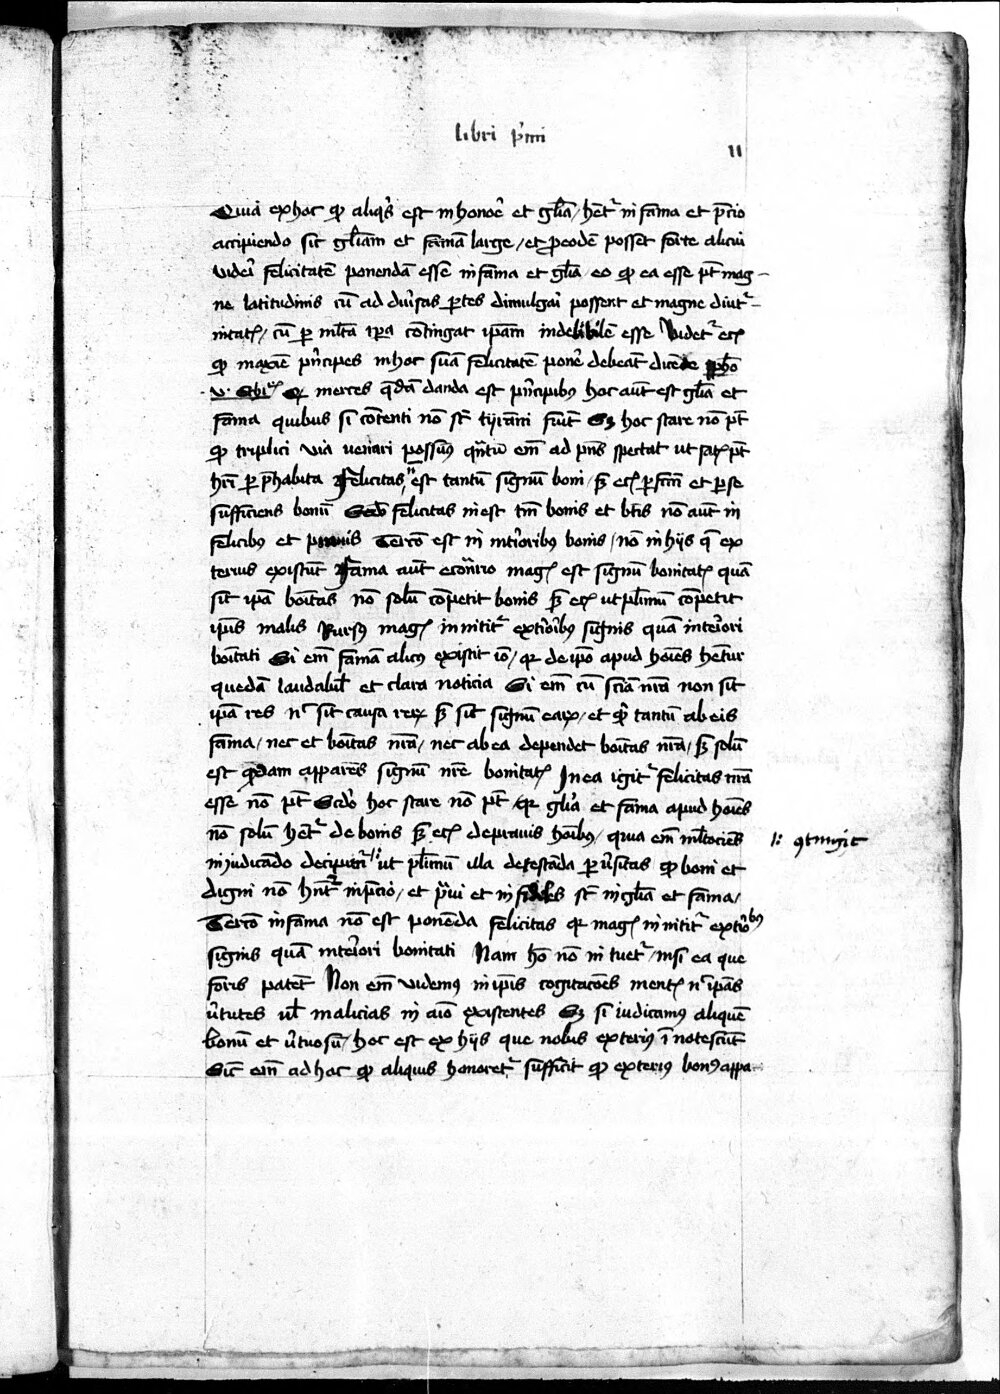 libri pͥmi
11
Quia ex hoc qͥ aliqͥs est in honoē et gl̄ia / hētͬ in fama et p̄cio
accipiendo sic gl̄iam et famā large / et ꝑ eodē posset forte alicui
videͥ felicitatē ponendā esse in fama et gl̄ia eo qͥ ea esse pt̄ mag-
ne latitudinis cū ad diu̓sas ꝑtes diuulgaͥ possent et magne diutͬ-
nitatꝭ / cū ꝑ ml̄ta tꝑa cōtingat ip̄am indelibilē esse Videtͬ ecꝭ
qͥ maxīe pͥncipes in hoc suā felicitatē ponē debeāt dicēte ph̄o
v. Ethiꝭ qͥ merces q̄dā danda est pͥncipibꝰ hoc aūt est gl̄ia et
fama quibus si cōtenti nō st̄ tyrāni fiūt Sꝫ hoc stare nō pt̄
qͥ triplici via venari possumꝰ qͣntū em̄ ad p̄ns spectat ut satꝭ pt̄
hr̄i ꝑ p̄habita Felicitas est tantū signū boni / sꝫ ecꝭ ꝑfcm̄ et ꝑ se
sufficiens bonū Scdo felicitas inest tm̄ bonis et bt̄is nō aūt in
felicibꝰ et pͣuis Tercō est in int̓ioribus bonis / nō in hijs q̄ ex
terius existūt Fama aūt econͣrio magꝭ est signū bonitatꝭ quā
sit ipā boītas nō solū cōpetit bonis sꝫ ecꝭ ut pl̄imū cōpetit
ipis malis Rursꝰ magꝭ innititͬ ext̓ioribꝰ signis quā interiori
boītati Si em̄ famā alicꝰ existit iō / qͥ de ip̄o apud hoīes hētur
quedā laudabil̓ et clara noticia Si em̄ cū sciā nr̄a non sit
ipā res nͨ sit causa reꝝ sꝫ sit signū eaꝝ / et qͥ tantū ab eis
fama / nec et boītas nr̄a / nec ab ea dependet boītas nr̄a / sꝫ solū
est qͦddam apparēs signū nr̄e bonitatꝭ In ea igitͬ felicitas nr̄a
esse nō pt̄ Scdo hoc stare nō pt̄ qͥ gl̄ia et fama apud hoīes
nō solū hētͬ de bonis sꝫ ecꝭ de prauis hoībus / quia em̄ ml̄tociēs
1: ꝯtingit
in judicādo decipiūtͬ / ut pl̄imū illa detestāda ꝑu̓sitas qͥ boni et
digni nō hn̄tͬ in p̄cio / et pͣui et infideles st̄ in gl̄ia et fama /
Tercō in fama nō est ponēda felicitas qͥ magꝭ innititͬ ext̓iobꝰ
signis quā interiori bonitati Nam hō nō intuetͬ / nisi ea que
foris patēt Non em̄ videmꝰ in ip̄is cogitacōes mentꝭ nͨ ipās
v̓tutes vl̓ malicias in aīo existentes Sꝫ si iudicamꝰ aliquē
bonū et v̓tuosū / hoc est ex hijs que nobis exteriꝰ īnotescūt
Sic em̄ ad hoc qͥ aliquis honoretͬ sufficit qͥ exteriꝰ bonꝰ appa-